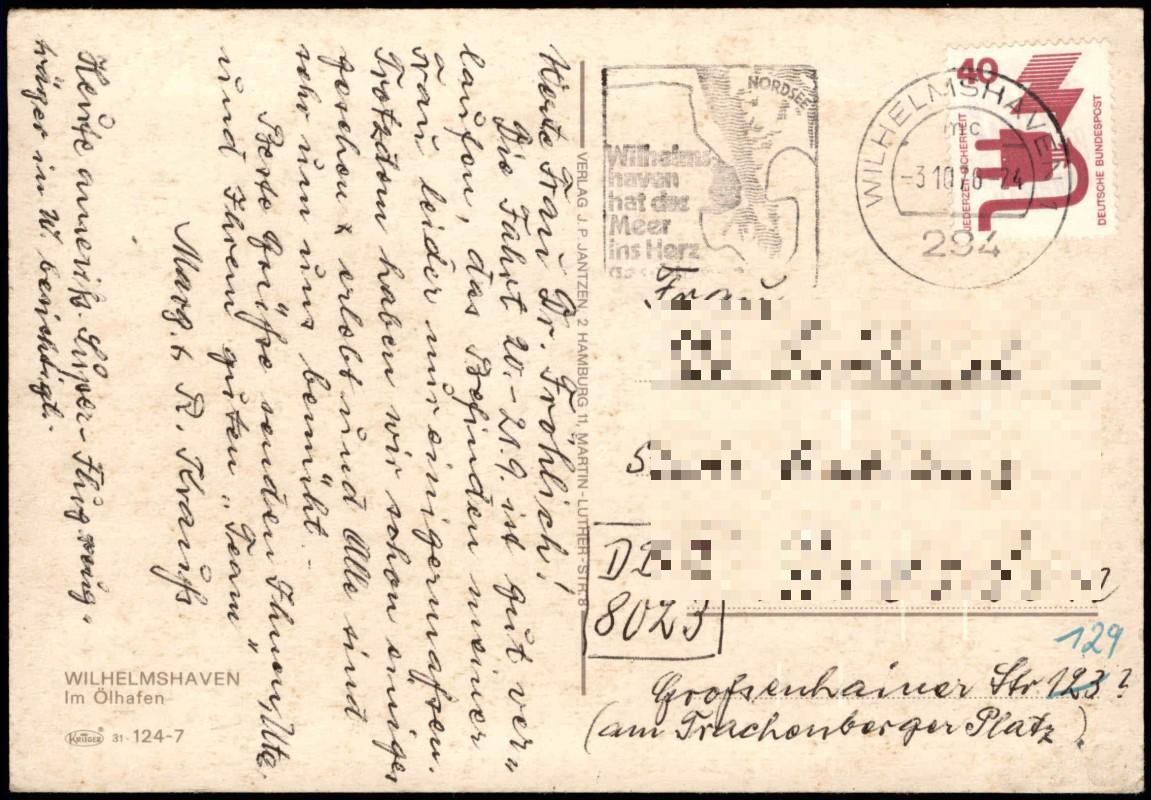 Werte Frau Dr. Fröhlich!
Die Fahrt 20.-21.9. ist gut ver-
laufen, das Befinden meiner
Frau leider nur einigermaßen.
Trotzdem haben wir schon einiges
gesehen & erlebt und Alle sind
sehr um uns bemüht.
Beste Grüße senden Ihnen, Ute
und Ihrem guten "Team"
Marg. & R. Krauß
Heute amerik. Super-Flugzeug-
träger in W. besichtigt.
WILHELMSHAVEN
Im Ölhafen
KRÜGER 31-124-7
VERLAG J. P. JANTZEN, 2 HAMBURG 11, MARTIN-LUTHER-STR. 8
NORDSEE
Wilhelms
haven
hat das
Meer
ins Herz
WILHELMSHAVEN 1
mc
-3.10.76-24
294
40
JEDERZEIT SICHERHEIT
DEUTSCHE BUNDESPOST
Frau
8023
129
Großenhainer Str. 123?
(am Trachenberger Platz)